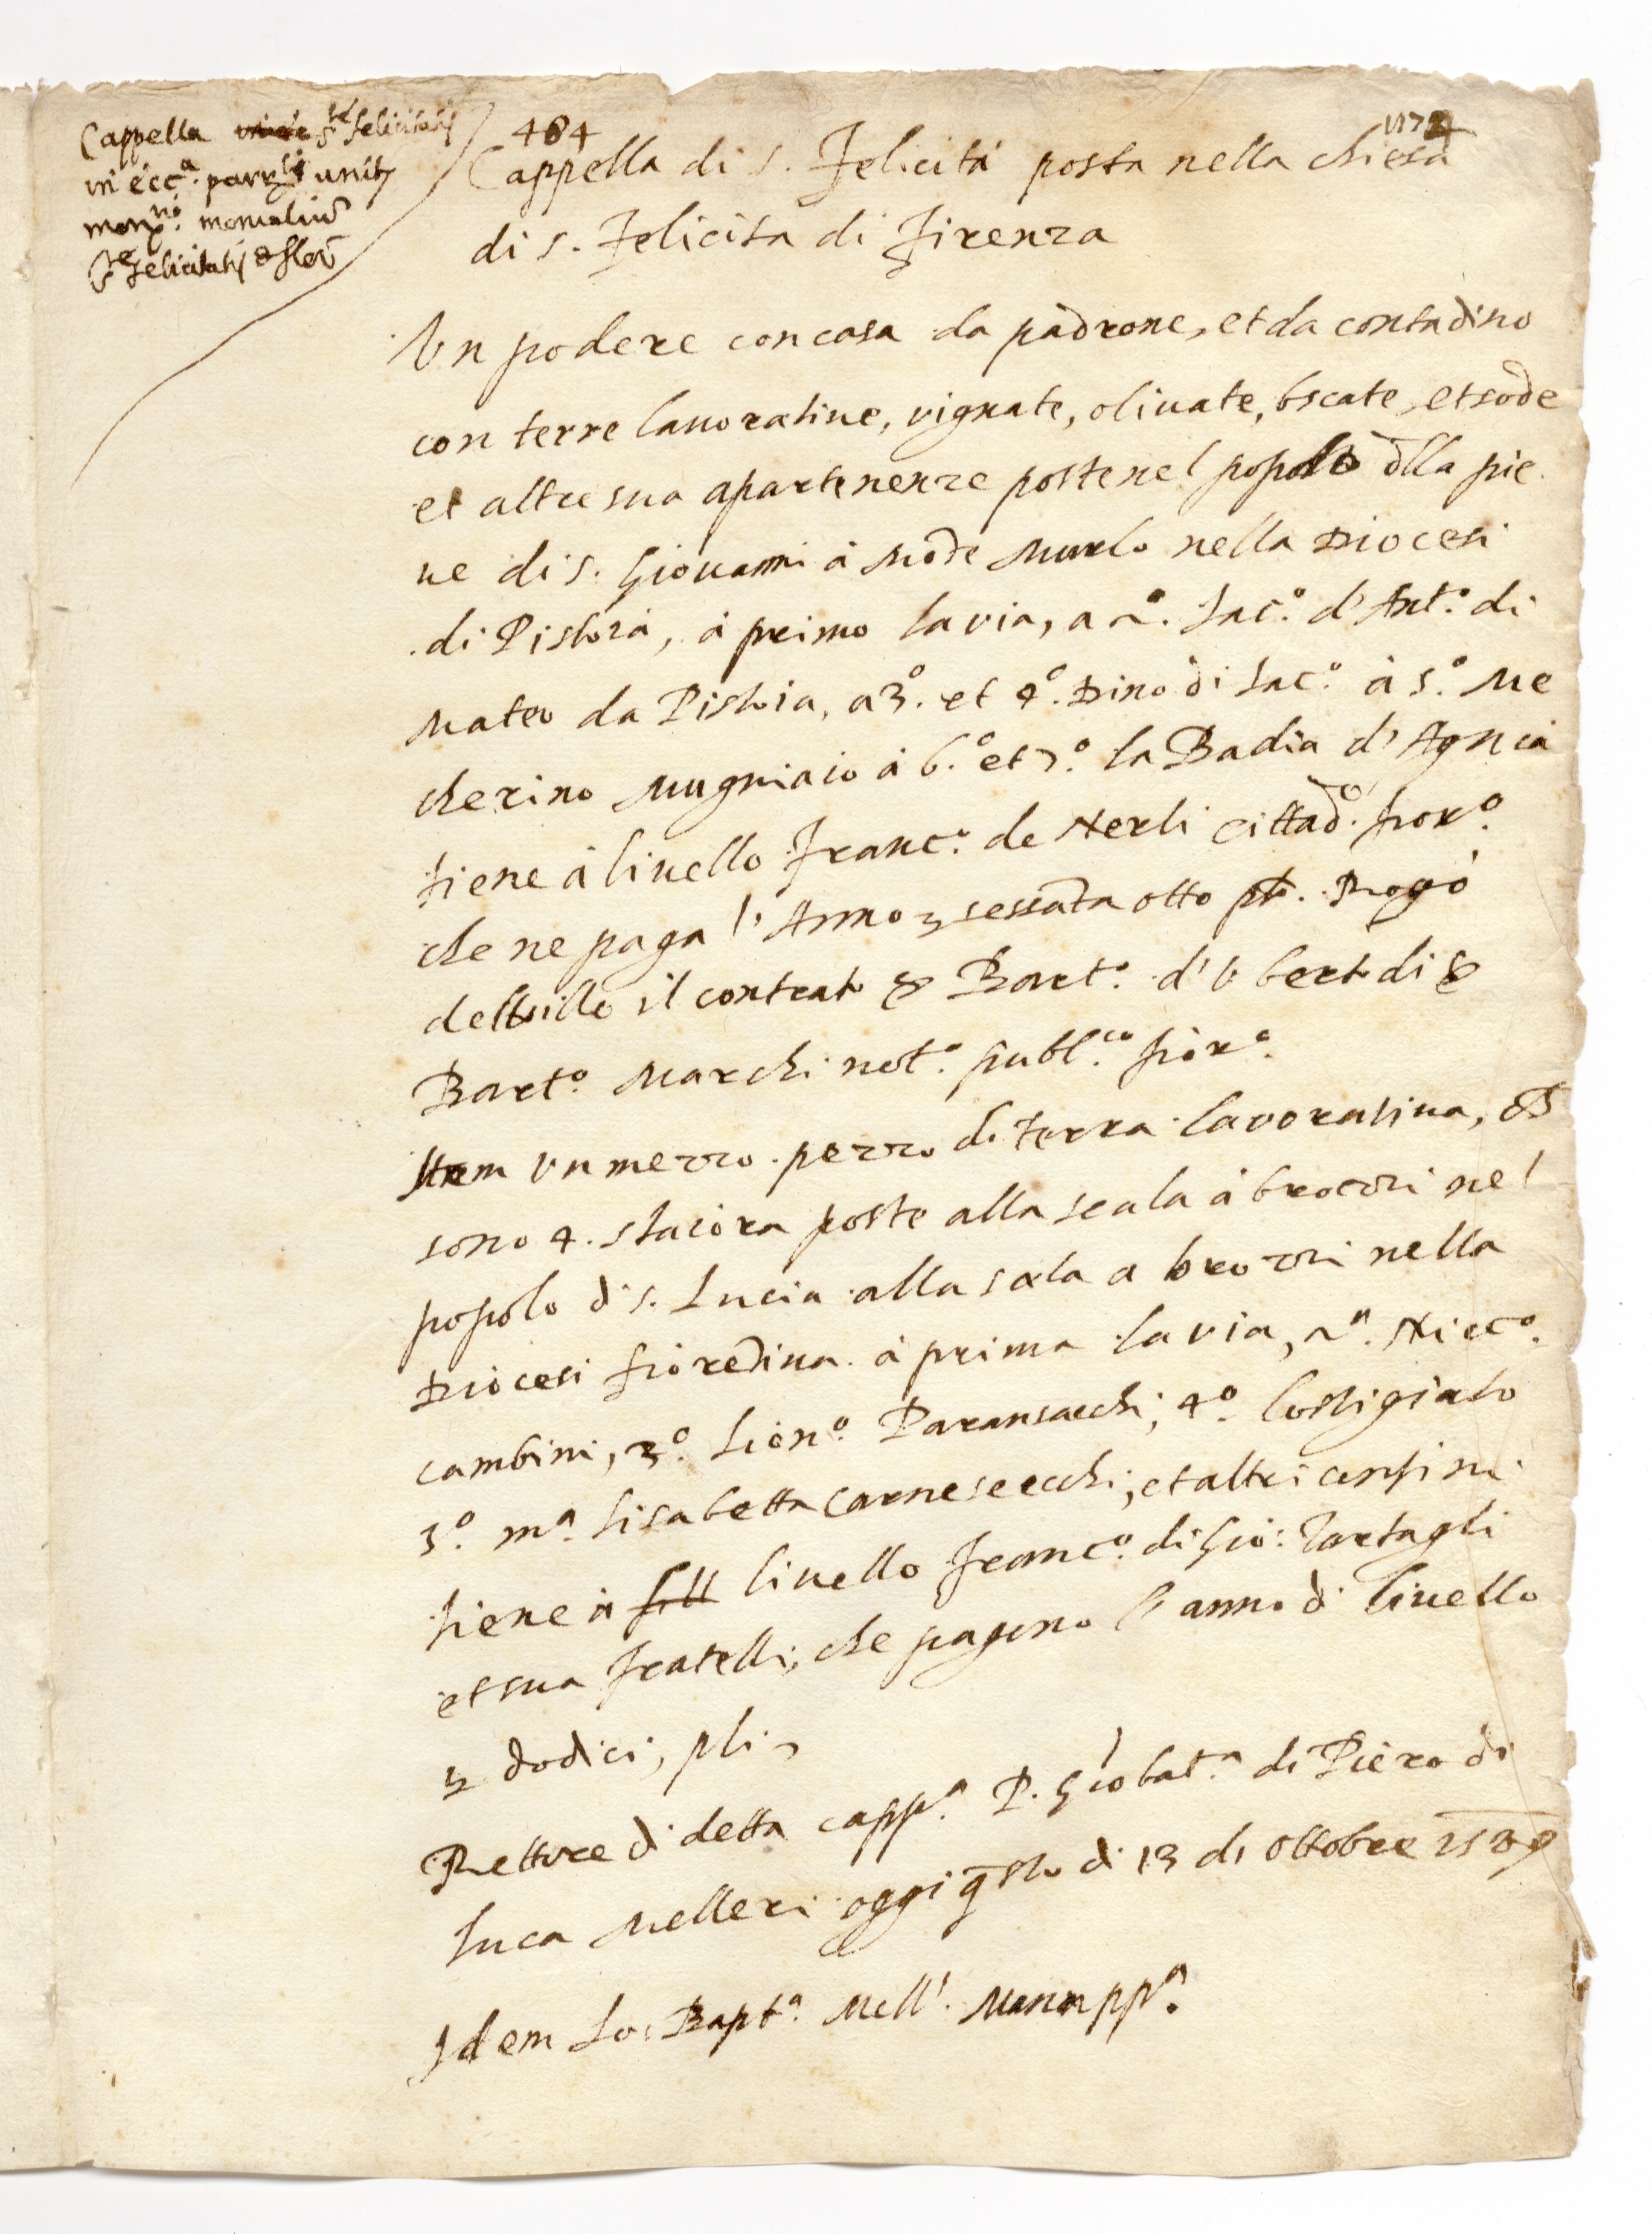 Cappella ste felicitatis
in ecc.a parrli unit.
mon.rio monialium
Ste felicitatis de flor
484
Cappella di s. Felicita posta nella chiesa
di s. Felicita di Firenza
Un podere con casa da padrone, et da contadino
con terre lauoratiue, vignate, oliuate, bscate, et sode
et altre sua apartenenze poste nel popolo dlla pie
ue di s. Giouanni à mōte Murlo nella Diocesi
di Pistoia, à primo la via, a 2.o Iac.o d'Ant.o di
Mateo da Pistoia, a 3.o et 4.o Dino di Iac.o à 5.o Me
cherino Mugniaio à 6.o et 7.o la Badia d'Agna
tiene à liuello Franc.o de Nerli cittad.o fior.o
che ne paga l'Anno sessāta otto pli. Rogò
il contrato Bart.o d'Vberto di
Bart.o Marchi not.o publ.co fior.o
Item un mezzo pezzo di terra lavoratiua,
sono 4. staiora poste alla scala à brozzi nel
popolo di s. Lucia alla sala a brozzi nella
Diocesi fiorētina à prima la via, 2.o Nicc.o
cambini, 3.o Lion.o Paransacchi, 4.o
5.o m.a Lisabetta Carnesecchi, et altri confini
tiene à liuello Franc.o di Gio: Tartagli
et sua fratelli, che pagono l'anno di liuello
dodici, pli
Rettore di detta capp.a P. Giobat.a di Piero di
Luca Melleri oggi q̄sto di 13 di Ottobre
Idem Io: Bapt.a Mell. Manu pp.a